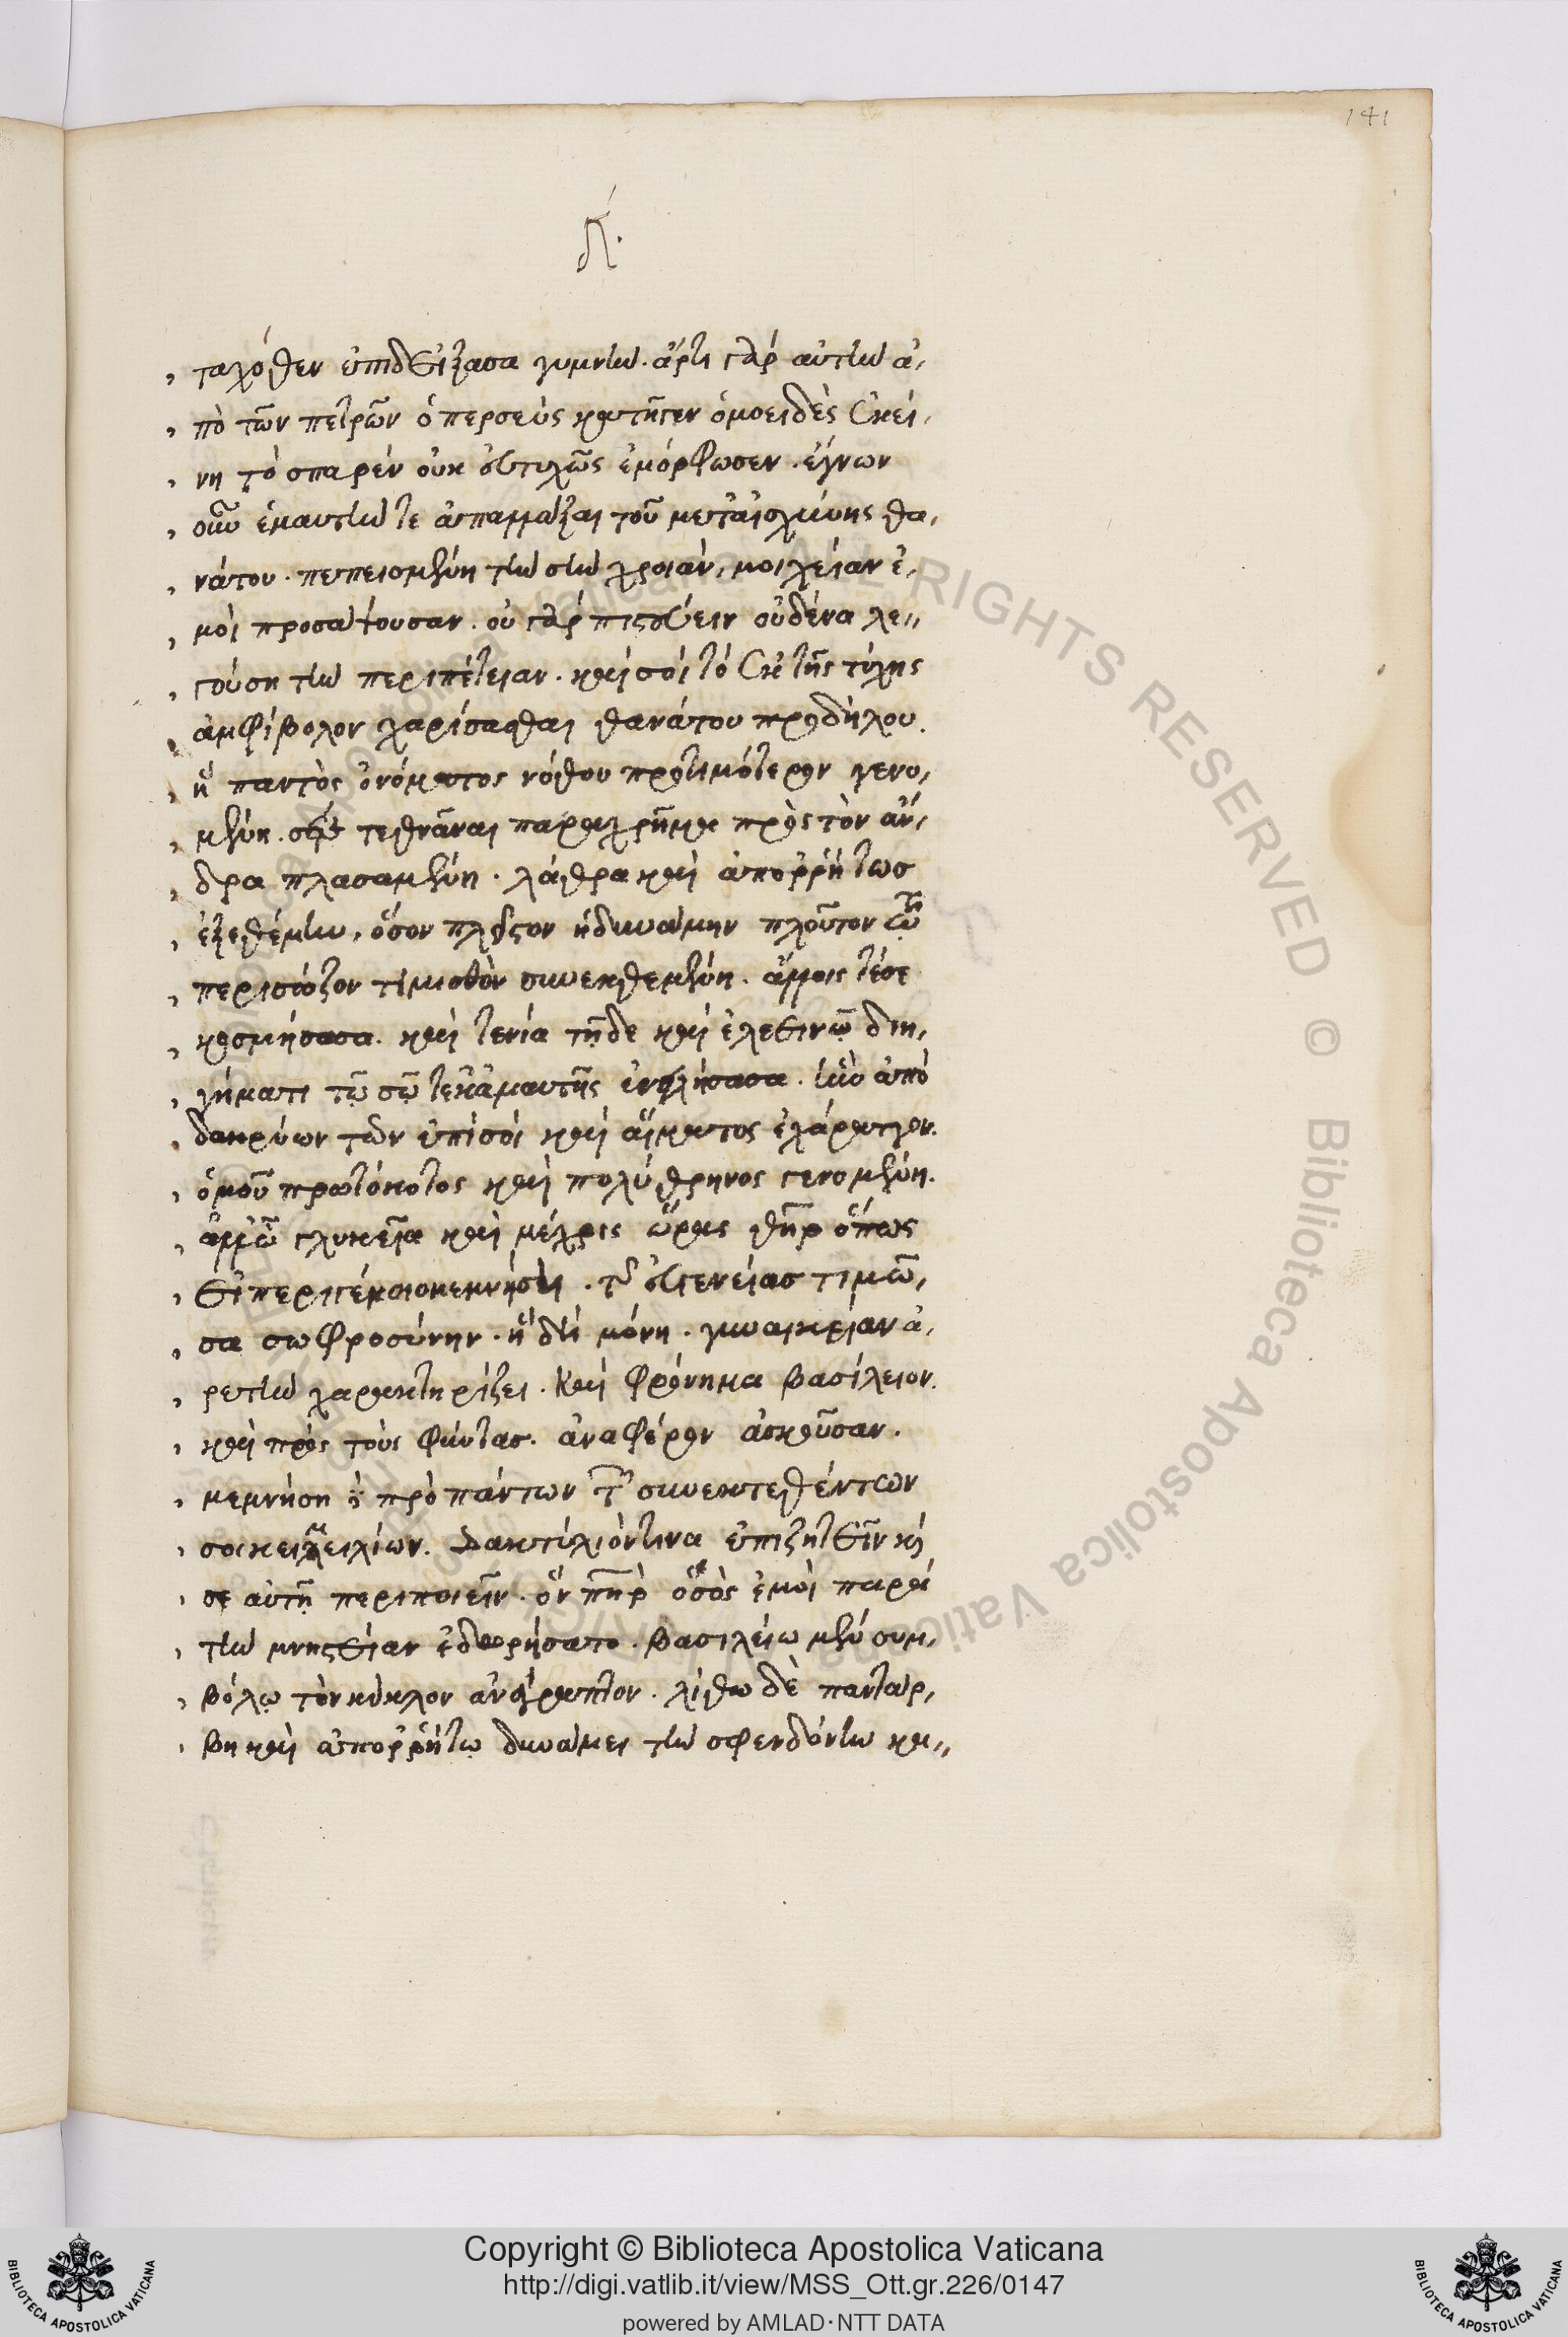 141
δ΄.
ταχόθεν ἐπιδείξασα γυμνὴν. ἄρτι γὰρ αὐτὴν ἀ,
πὸ τῶν πετρῶν ὁ περσεὺς κατῆγεν ὁμοειδὲς ἐκεί,
νη τὸ σπαρὲν οὐκ εὐτυχῶς ἐμόρφωσεν. ἔγνων
οὖν ἐμαυτὴν τε ἀπαλλάξαι τοῦ μετ' αἰσχύνης θα,
νάτου. πεπεισμένη τὴν σὴν χροιὰν, μοιχείαν ἐ,
μοὶ προσάψουσαν. οὐ γὰρ πιστεύειν οὐδένα λε,,
γούση τὴν περιπέτειαν. καὶ σοὶ τὸ ἐκ τῆς τύχης
ἀμφίβολον χαρίσασθαι θανάτου προδήλου.
ἢ παντὸς ὀνόματος νόθου προτιμότερον γενο,
μένη. σέ τε τεθνᾶναι παραχρῆμα πρὸς τὸν ἄν,
δρα πλασαμένη. λάθρα καὶ ἀπορρήτως
ἐξεθέμην, ὅσον πλεῖστον ἠδυνάμην πλοῦτον τῷ
περισώζοντι μισθὸν συνεκθεμένη. ἄλλοις τέ σε
κοσμήσασα. καὶ τενία τῇδε καὶ ἐλεεινῷ διη,
γήματι τῷ σῷ τε κἀμαυτῆς ἐνειλήσασα. ἣν ἀπὸ
δακρύων τῶν ἐπὶ σοὶ καὶ αἵματος ἐχάραττον.
ὁμοῦ πρωτότοκος καὶ πολύθρηνος γενομένη.
ἀλλ' ὦ γλυκεῖα καὶ μέχρις ὥρας θύγατερ ὅπως
εἰ περιγένοιο μεμνήσει. τῆς εὐγενείας τιμῶ,
σα σωφροσύνην. ἣ δὴ μόνη. γυναικείαν ἀ,
ρετὴν χαρακτηρίζει. καὶ φρόνημα βασίλειον.
καὶ πρὸς τοὺς φύντας. ἀναφέρον ἀσκοῦσαν.
μεμνήση δὲ πρὸ πάντων τῶν συνεκτεθέντων
σοι κειμειλίων. δακτύλιόν τινα ἐπιζητεῖν καὶ
σε αὐτῇ περιποιεῖν. ὃν πατὴρ ὁ σὸς ἐμοὶ παρὰ
τὴν μνηστείαν ἐδωρήσατο. βασιλείω μὲν συμ,
βόλῳ τὸν κύκλον ἀνάγραπτον. λίθω δὲ παντάρ,
βη καὶ ἀπορρήτῳ δυνάμει τὴν σφενδόνην κα,,
RIGHTS RESERVED © Biblioteca Apostolica Vaticana
Copyright © Biblioteca Apostolica Vaticana
http://digi.vatlib.it/view/MSS_Ott.gr.226/0147
powered by AMLAD·NTT DATA
BIBLIOTECA APOSTOLICA VATICANA
BIBLIOTECA APOSTOLICA VATICANA